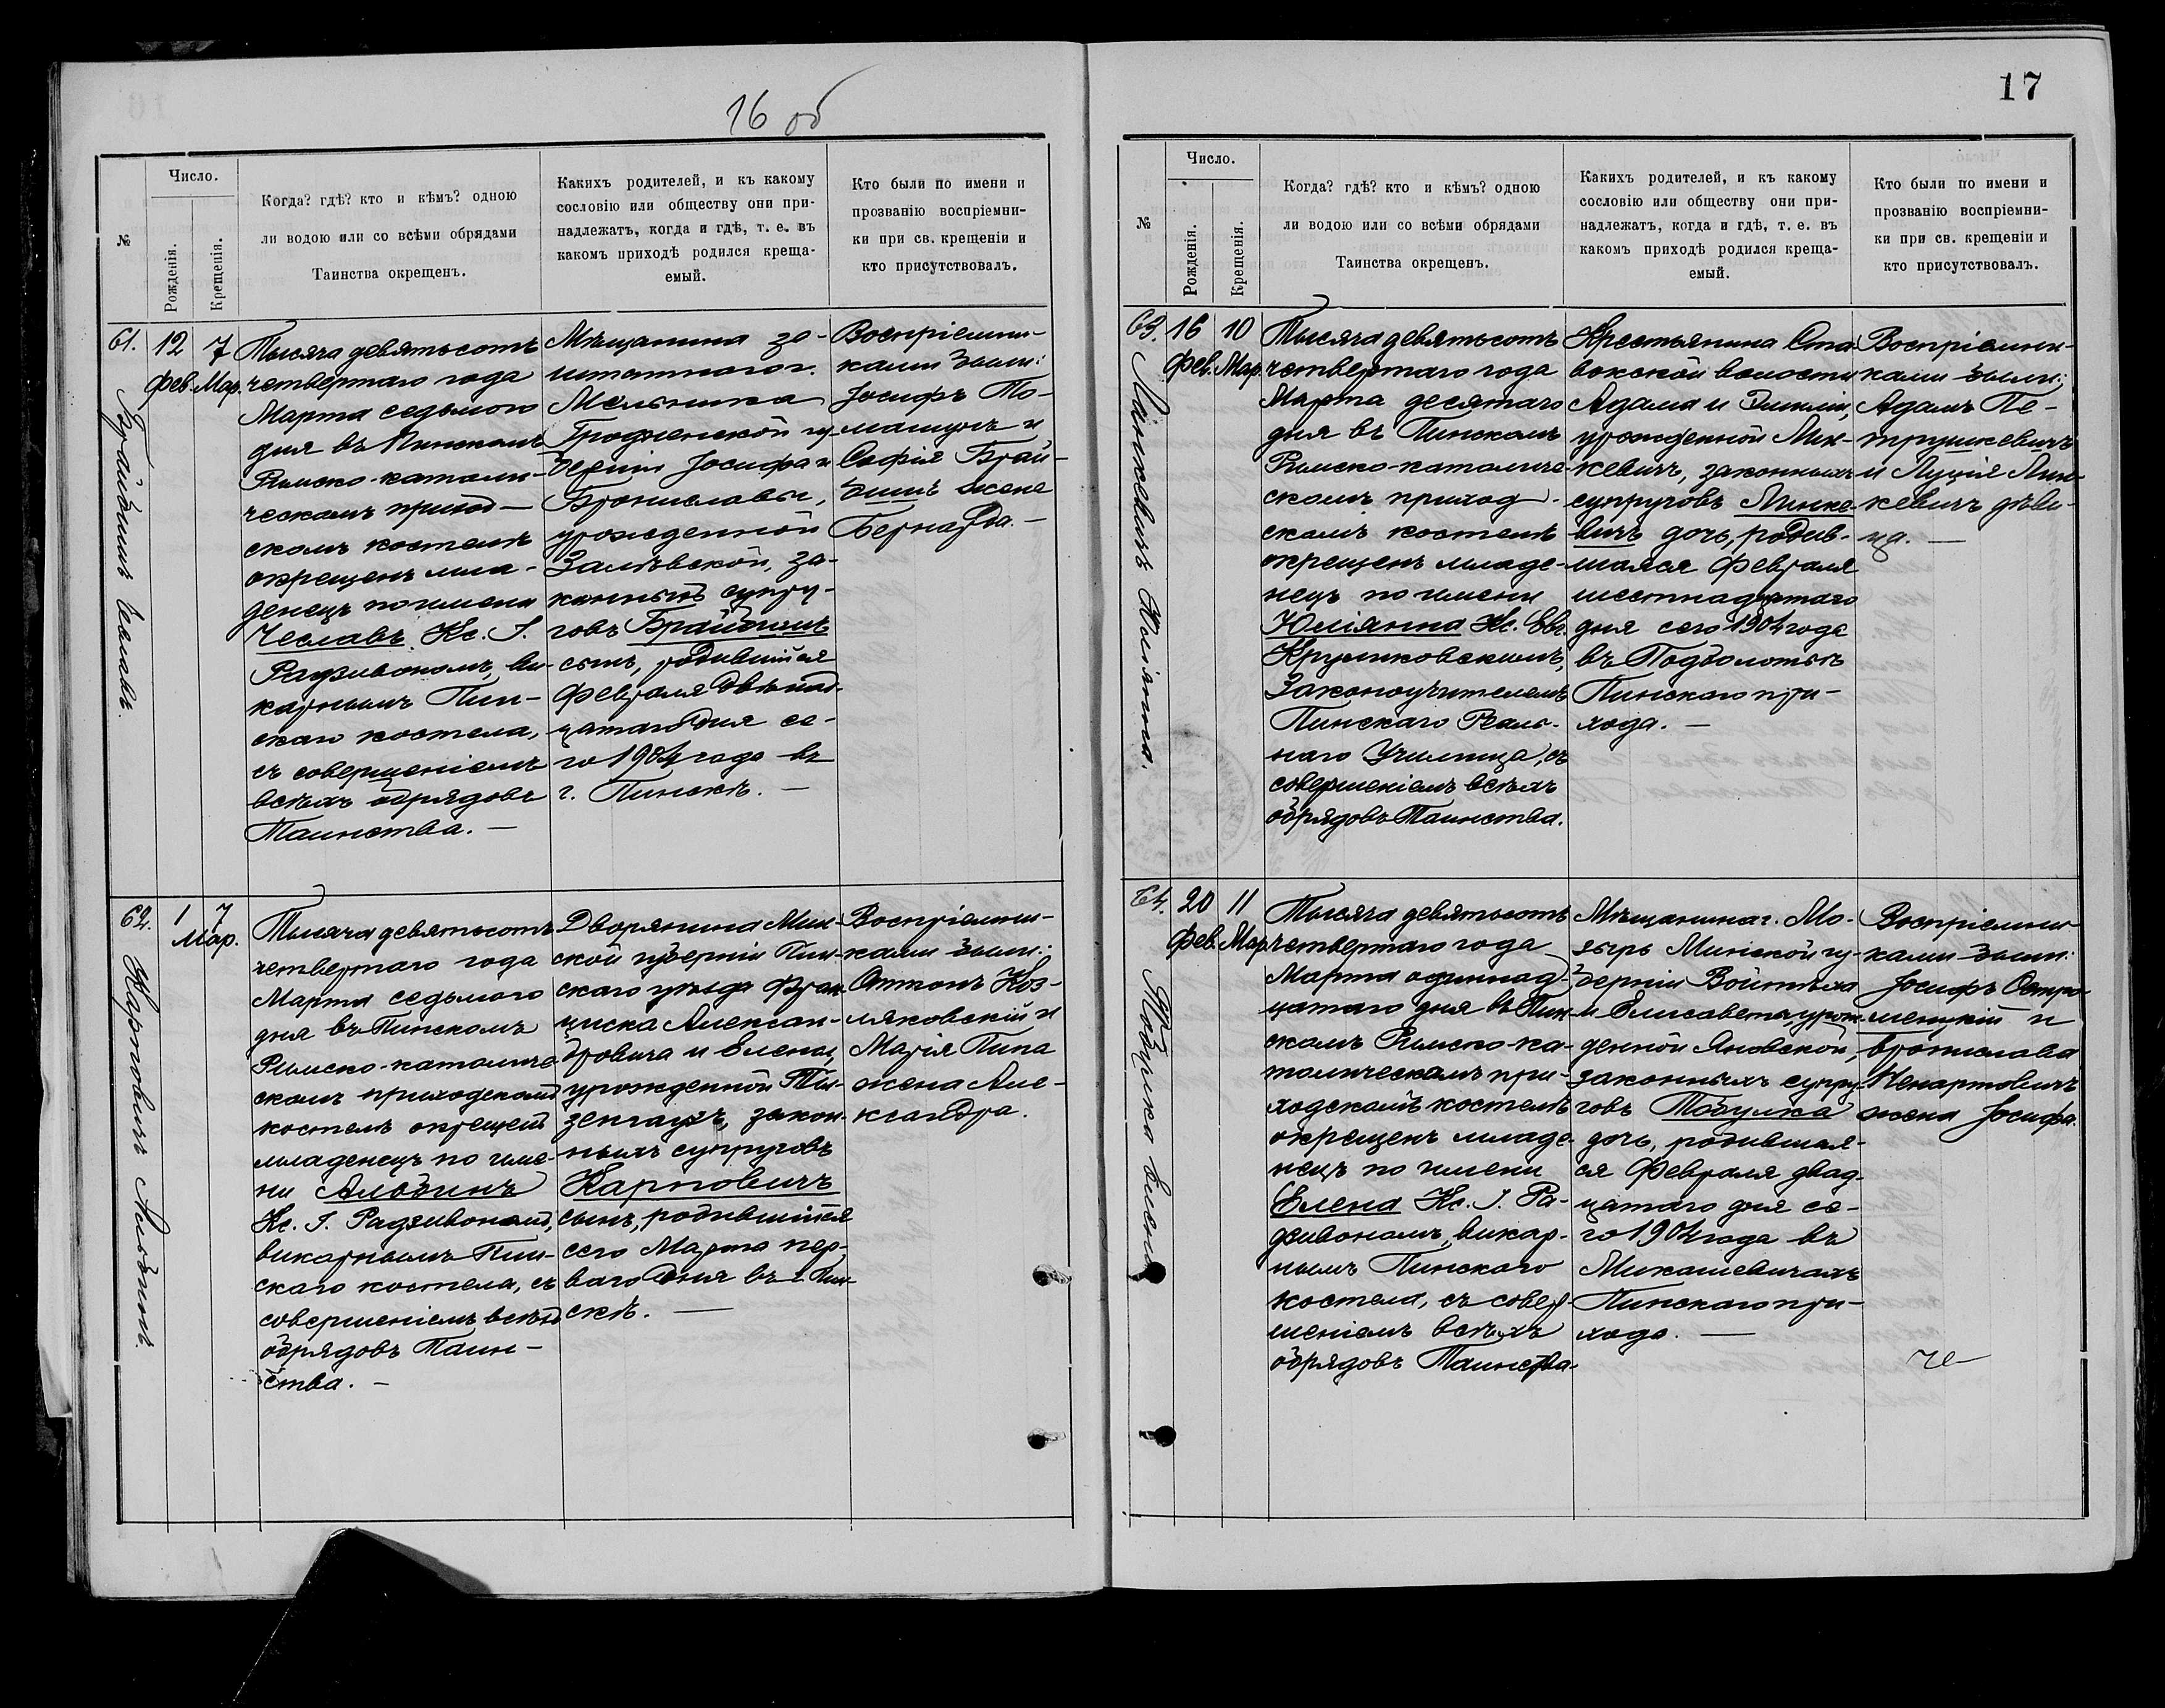 16 об
№
Число.
Рожденія.
Крещенія.
Когда? гдѣ? кто и кѣмъ? одною
ли водою или со всѣми обрядами
Таинства окрещенъ.
Какихъ родителей, и къ какому
сословію или обществу они при-
надлежатъ, когда и гдѣ, т. е. въ
какомъ приходѣ родился креща-
емый.
Кто были по имени и
прозванію воспріемни-
ки при св. крещеніи и
кто присутствовалъ.
61.
Брайбишъ Чеславъ.
12
Фев.
7
Мар.
Тысяча девятьсотъ
четвертаго года
Марта седьмого
дня въ Пинскомъ
Римско-католи-
ческомъ приход-
скомъ костелѣ
окрещенъ мла-
денецъ по имени
Чеславъ Кс. І.
Радзивономъ, ви-
карнымъ Пин-
скаго костела,
съ совершеніемъ
всѣхъ обрядовъ
Таинства. —
Мѣщанина за-
штатнаго г.
Мельника
Гродненской гу-
берніи Іосифа и
Брониславы,
урожденной
Залѣвской, за-
конныхъ супру-
говъ Брайбишъ
сынъ, родившійся
Февраля двѣнад-
цатаго дня се-
го 1904 года въ
г. Пинскѣ. —
Воспріемни-
ками были:
Іосифъ То-
машукъ и
Софія Брай-
бишъ жена
Бернарда. —
62.
Карповичъ Альбинъ.
1
7
Мар.
Тысяча девятьсотъ
четвертаго года
Марта седьмого
дня въ Пинскомъ
Римско-католиче
скомъ приходскомъ
костелѣ окрещенъ
младенецъ по име-
ни Альбинъ
Кс. І. Радзивономъ,
викарнымъ Пин-
скаго костела, съ
совершеніемъ всѣхъ
обрядовъ Таин-
ства. —
Дворянина Мин-
ской губерніи Пин-
скаго уѣзда Фран-
циска Алексан-
дровича и Елены,
урожденной Ты-
зенгаузъ, закон-
ныхъ супруговъ
Карповичъ
сынъ, родившійся
сего Марта пер-
ваго дня въ г. Пин-
скѣ. —
Воспріемни-
ками были:
Антонъ Коз-
ляковскій и
Марія Пипа
жена Але-
ксандра.
17
№
Число.
Рожденія.
Крещенія.
Когда? гдѣ? кто и кѣмъ? одною
ли водою или со всѣми обрядами
Таинства окрещенъ.
Какихъ родителей, и къ какому
сословію или обществу они при-
надлежатъ, когда и гдѣ, т. е. въ
какомъ приходѣ родился креща-
емый.
Кто были по имени и
прозванію воспріемни-
ки при св. крещеніи и
кто присутствовалъ.
63.
Юліанна.
16
Фев.
10
Мар.
Тысяча девятьсотъ
четвертаго года
Марта десятаго
дня въ Пинскомъ
Римско-католиче
скомъ приход-
скомъ костелѣ
окрещенъ младе-
нецъ по имени
Юліанна Кс. Евг.
Крумковскимъ,
Законоучителемъ
Пинскаго Реаль-
наго Училища, съ
совершеніемъ всѣхъ
обрядовъ Таинства.
Крестьянина Ста
вокской волости
Адама и Эмиліи,
урожденной Мин-
кевичъ, законныхъ
супруговъ Минке-
вичъ дочь, родив-
шаяся Февраля
шестнадцатаго
дня сего 1904 года
въ Подболотьѣ
Пинскаго при-
хода. —
Воспріемни-
ками были:
Адамъ Пе-
трушкевичъ
и Луція Мин-
кевичъ дѣви-
ца. —
64.
Тобулка Елена
20
Фев.
11
Мар.
Тысяча девятьсотъ
четвертаго года
Марта одиннад-
цатаго дня въ Пин-
скомъ Римско-ка-
толическомъ при-
ходскомъ костелѣ
окрещенъ младе-
нецъ по имени
Елена Кс. І. Ра-
дзивономъ, викар-
нымъ Пинскаго
костела, съ совер-
шеніемъ всѣхъ
обрядовъ Таинства.
Мѣщанина г. Мо-
зырь Минской гу-
берніи Войтѣха
и Елисаветы, урож-
денной Яновской,
законныхъ супру-
говъ Тобулка
дочь, родившая-
ся Февраля двад-
цатаго дня се-
го 1904 года въ
Микашевичахъ
Пинскаго при-
хода. —
Воспріемни-
ками были:
Іосифъ Остро-
менцкій и
Бронислава
Ленартовичъ
жена Іосифа.